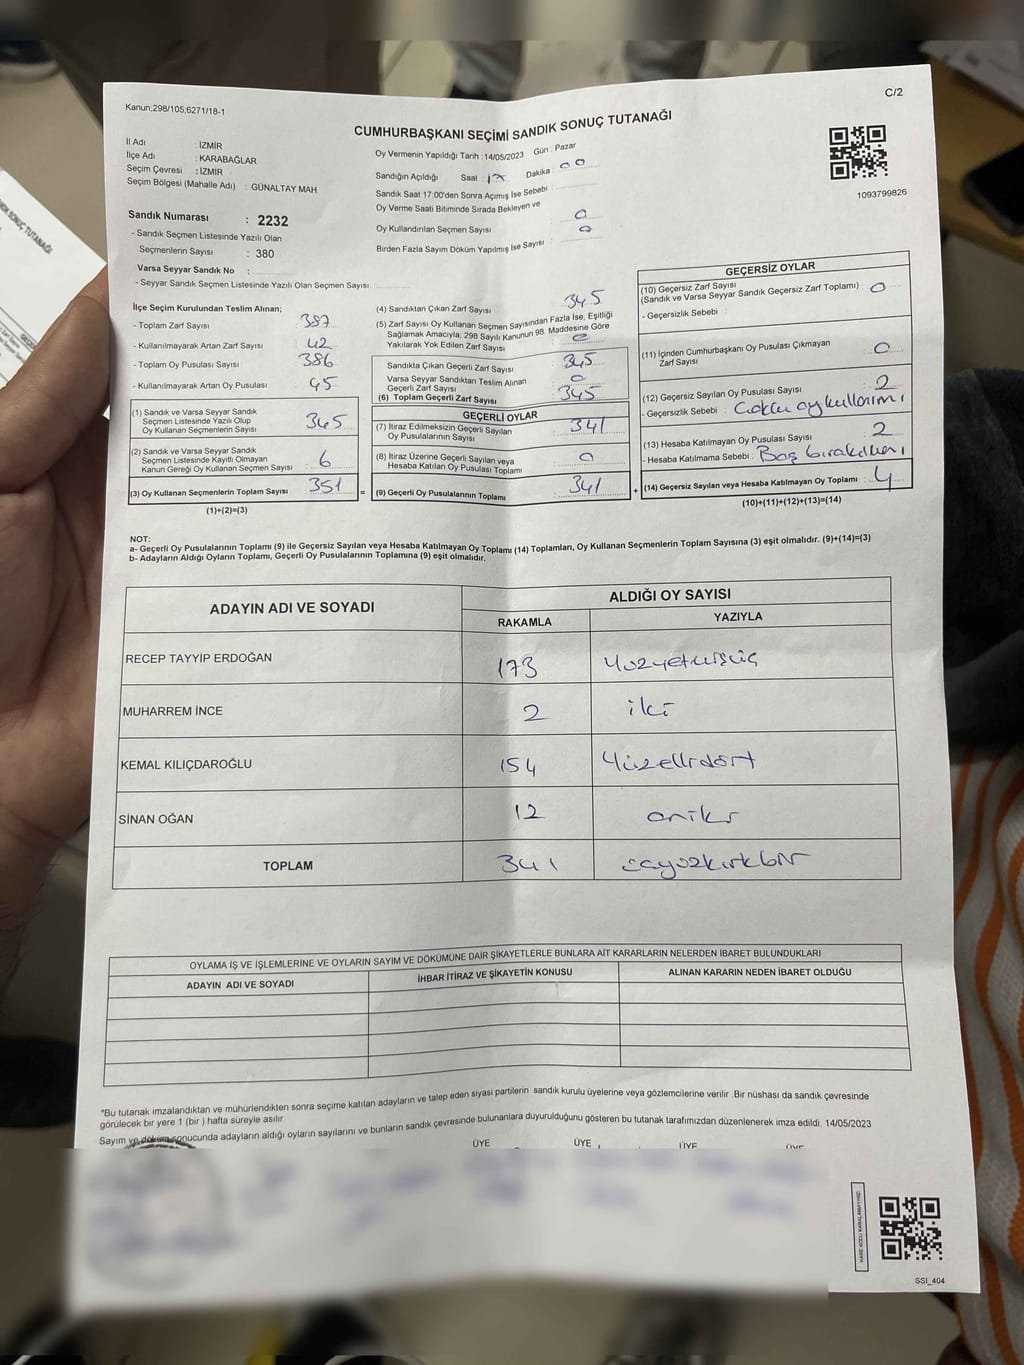 C/2
Kanun;298/105;6271/18-1
CUMHURBAŞKANI SEÇİMİ SANDIK SONUÇ TUTANAĞI
1093799826
İl Adı : İZMİR
İlçe Adı : KARABAĞLAR
Seçim Çevresi : İZMİR
Seçim Bölgesi (Mahalle Adı) : GÜNALTAY MAH.
Sandık Numarası : 2232
- Sandık Seçmen Listesinde Yazılı Olan
Seçmenlerin Sayısı : 380
Varsa Seyyar Sandık No :
- Seyyar Sandık Seçmen Listesinde Yazılı Olan Seçmen Sayısı:
Oy Vermenin Yapıldığı Tarih : 14/05/2023 Gün : Pazar
Sandığın Açıldığı Saat : 17 Dakika : 00
Sandık Saat 17:00'den Sonra Açımış İse Sebebi :
Oy Verme Saati Bitiminde Sırada Bekleyen ve
Oy Kullandırılan Seçmen Sayısı : 0
Birden Fazla Sayım Döküm Yapılmış İse Sayısı : 0
İlçe Seçim Kurulundan Teslim Alınan;
- Toplam Zarf Sayısı : 387
- Kullanılmayarak Artan Zarf Sayısı : 42
- Toplam Oy Pusulası Sayısı : 386
- Kullanılmayarak Artan Oy Pusulası : 45
(1) Sandık ve Varsa Seyyar Sandık
Seçmen Listesinde Yazılı Olup
Oy Kullanan Seçmenlerin Sayısı : 345
(2) Sandık ve Varsa Seyyar Sandık
Seçmen Listesinde Kayıtlı Olmayan
Kanun Gereği Oy Kullanan Seçmen Sayısı : 6
(3) Oy Kullanan Seçmenlerin Toplam Sayısı : 351
(1)+(2)=(3)
(4) Sandıktan Çıkan Zarf Sayısı : 345
(5) Zarf Sayısı Oy Kullanan Seçmen Sayısından Fazla İse, Eşitliği
Sağlamak Amacıyla; 298 Sayılı Kanunun 98. Maddesine Göre
Yakılarak Yok Edilen Zarf Sayısı :
Sandıkta Çıkan Geçerli Zarf Sayısı : 345
Varsa Seyyar Sandıktan Teslim Alınan
Geçerli Zarf Sayısı : 0
(6) Toplam Geçerli Zarf Sayısı : 345
GEÇERLİ OYLAR
(7) İtiraz Edilmeksizin Geçerli Sayılan
Oy Pusulalarının Sayısı : 341
(8) İtiraz Üzerine Geçerli Sayılan veya
Hesaba Katılan Oy Pusulası Toplamı : 0
= (9) Geçerli Oy Pusulalarının Toplamı : 341 +
GEÇERSİZ OYLAR
(10) Geçersiz Zarf Sayısı
(Sandık ve Varsa Seyyar Sandık Geçersiz Zarf Toplamı) : 0
- Geçersizlik Sebebi :
(11) İçinden Cumhurbaşkanı Oy Pusulası Çıkmayan
Zarf Sayısı : 0
(12) Geçersiz Sayılan Oy Pusulası Sayısı : 2
- Geçersizlik Sebebi :
(13) Hesaba Katılmayan Oy Pusulası Sayısı : 2
- Hesaba Katılmama Sebebi :
(14) Geçersiz Sayılan veya Hesaba Katılmayan Oy Toplamı : 4
(10)+(11)+(12)+(13)=(14)
NOT:
a- Geçerli Oy Pusulalarının Toplamı (9) ile Geçersiz Sayılan veya Hesaba Katılmayan Oy Toplamı (14) Toplamları, Oy Kullanan Seçmenlerin Toplam Sayısına (3) eşit olmalıdır. (9)+(14)=(3)
b- Adayların Aldığı Oyların Toplamı, Geçerli Oy Pusulalarının Toplamına (9) eşit olmalıdır.
ADAYIN ADI VE SOYADI ALDIĞI OY SAYISI
RAKAMLA YAZIYLA
RECEP TAYYİP ERDOĞAN 173 Yüzyetmişüç
MUHARREM İNCE 2 iki
KEMAL KILIÇDAROĞLU 154 Yüzellidört
SİNAN OĞAN 12 oniki
TOPLAM 341 üçyüzkırkbir
OYLAMA İŞ VE İŞLEMLERİNE VE OYLARIN SAYIM VE DÖKÜMÜNE DAİR ŞİKAYETLERLE BUNLARA AİT KARARLARIN NELERDEN İBARET BULUNDUKLARI
ADAYIN ADI VE SOYADI İHBAR İTİRAZ VE ŞİKAYETİN KONUSU ALINAN KARARIN NEDEN İBARET OLDUĞU
*Bu tutanak imzalandıktan ve mühürlendikten sonra seçime katılan adayların ve talep eden siyasi partilerin sandık kurulu üyelerine veya gözlemcilerine verilir .Bir nüshası da sandık çevresinde
görülecek bir yere 1 (bir ) hafta süreyle asılır.
Sayım ve döküm sonucunda adayların aldığı oyların sayılarını ve bunların sandık çevresinde bulunanlara duyurulduğunu gösteren bu tutanak tarafımızdan düzenlenerek imza edildi. 14/05/2023
ÜYE ÜYE ÜYE ÜYE
SSI_404